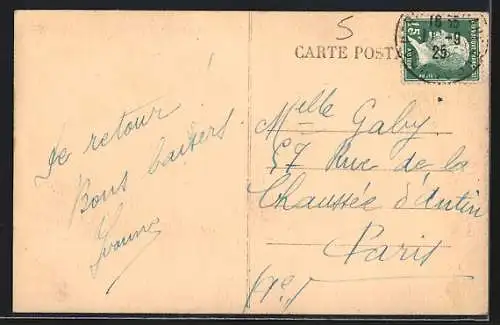 5
CARTE POST
15c
18 15
1 -9
25
De retour
Bons baisers.
Yvonne
Melle Gaby
57 Rue de la
Chaussée d'Antin
Paris
(9e)